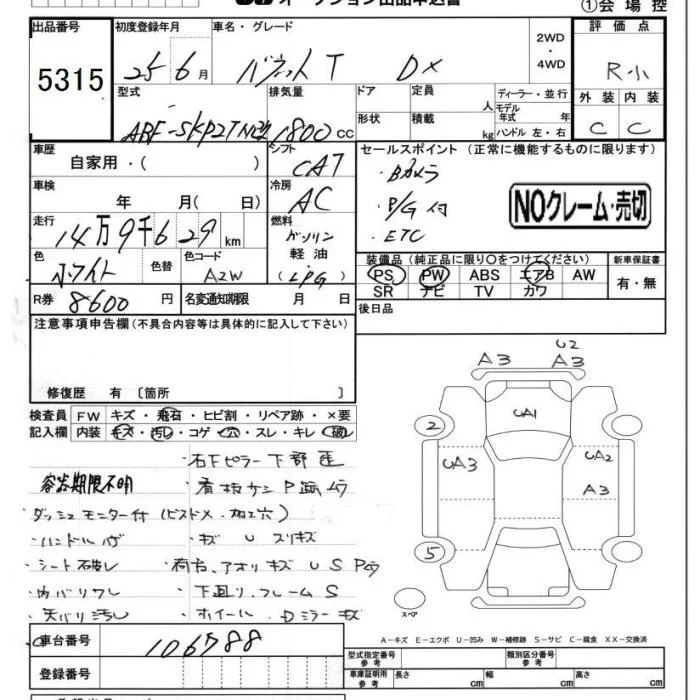 ①会場控
出品番号 初度登録年月 車名・グレード 2WD ・ 4WD 評価点
5315 25 6月 バネット T DX R-小
型式 排気量 ドア 定員 人 ディーラー・並行 外装 内装
ABF-SKP2TN改 1800cc 形状 積載 kg モデル年式 年 ハンドル 左・右 C C
車歴 シフト セールスポイント (正常に機能するものに限ります)
自家用・( ) CA7 ・Bカメラ
車検 冷房 ・P/G付
年 月( 日) AC ・ETC
NOクレーム・売切
走行 燃料
14万9千629km ガソリン 軽油 (LPG)
装備品 (純正品に限り○をつけてください) 新車保証書
PS PW ABS エアB AW 有・無
SR ナビ TV カワ
色 色替 色コード
ホワイト A2W
R券 8600円 名変通知期限 月 日 後日品
注意事項申告欄(不具合内容等は具体的に記入して下さい)
修復歴 有 〔箇所 〕
検査員 FW キズ・飛石・ヒビ割・リペア跡・×要
記入欄 内装 キズ・汚レ・コゲ・穴・スレ・キレ・破レ
・右下ピラー下部
容器期限不明
・ダッシュモニター付 (ビストメ・加工穴)
・ハンドル ・キズ U スリキズ
・シート破レ ・荷台、アオリ キズ U S
・内バリワレ ・下回り、フレーム S
・天バリ汚レ ・ホイール・Dミラーキズ
A3 A3 U2
UA1
2
UA3 UA2
A3
5
スペア
A-キズ E-エクボ U-凹み W-補修跡 S-サビ C-腐食 XX-交換済
車台番号 106788
登録番号
型式指定番号 参考 類別区分番号 参考
車庫証明用 参考 長さ cm 幅 cm 高さ cm